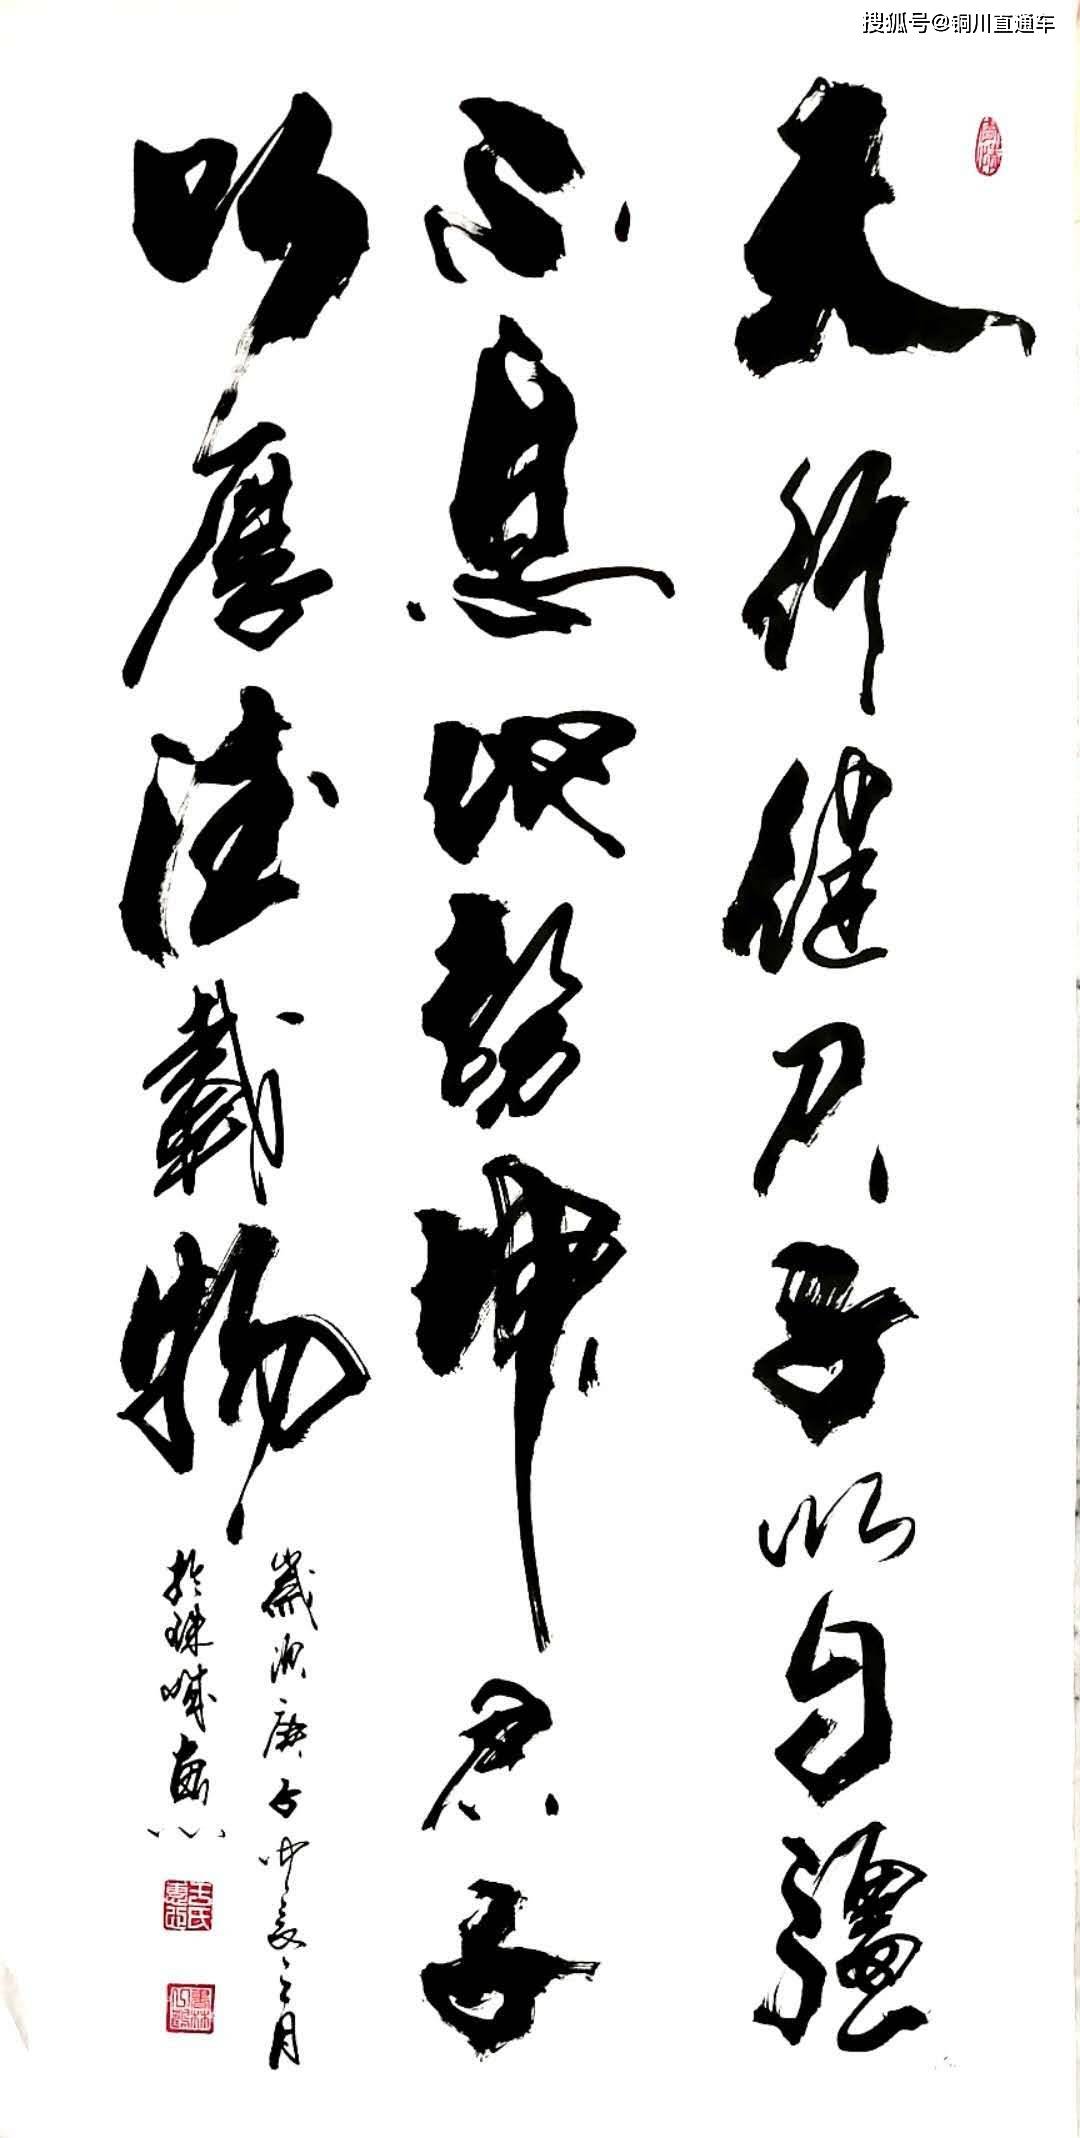 搜狐号@铜川直通车
天行健君子以自彊
不息地勢坤君子
以厚德載物
歲次庚子仲夏之月
於珠城惠